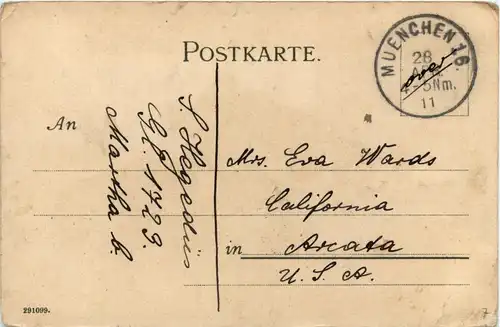 POSTKARTE.
MUENCHEN 16.
28
APR.
5Nm.
11
over
An
S. Hegedüs
Gf. 1729.
Martha b.
Mrs. Eva Wards
California
in Arcata
U. S. A.
291099.
7